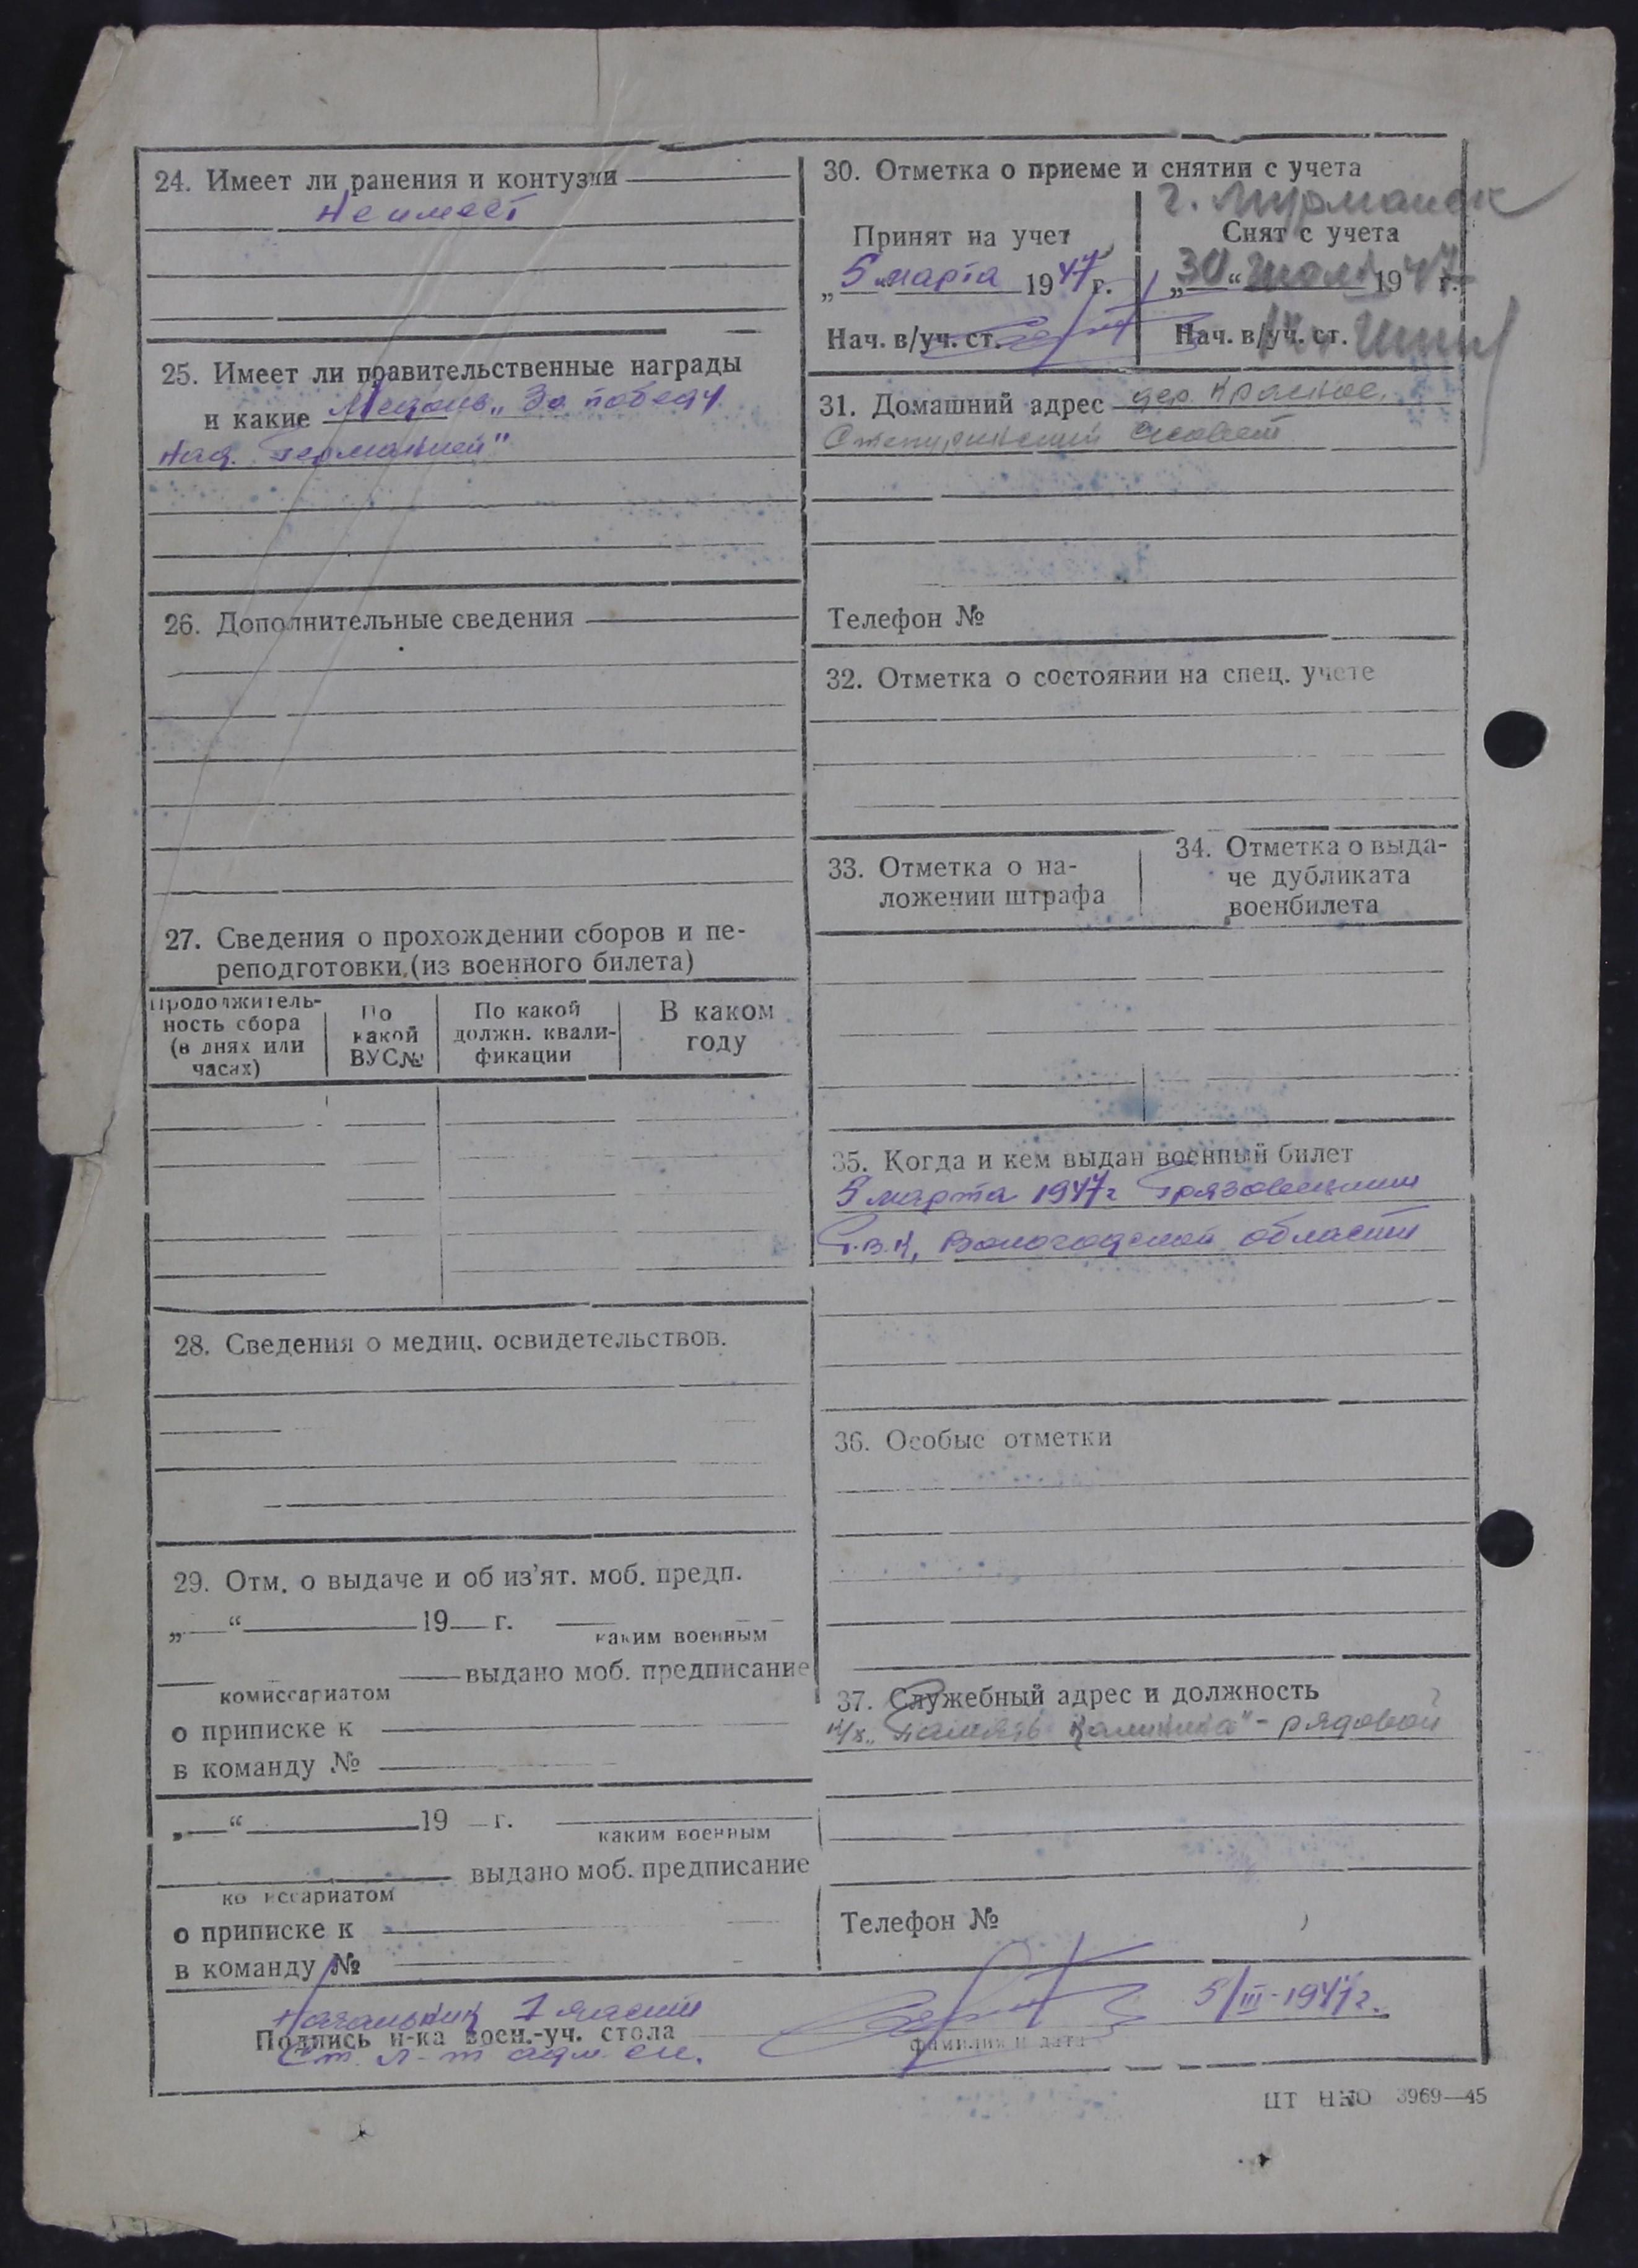 24. Имеет ли ранения и контузии
Не имеет
25. Имеет ли правительственные награды
и какие Медаль „За победу
над Германией"
26. Дополнительные сведения
27. Сведения о прохождении сборов и пе-
реподготовки (из военного билета)
Продолжитель-
ность сбора
(в днях или
часах)
По
какой
ВУС№
По какой
должн. квали-
фикации
В каком
году
28. Сведения о медиц. освидетельствов.
29. Отм. о выдаче и об из'ят. моб. предп.
„ “ 19 г.
каким военным
выдано моб. предписание
комиссариатом
о приписке к
в команду №
„ “ 19 г.
каким военным
выдано моб. предписание
ко иссариатом
о приписке к
в команду №
30. Отметка о приеме и снятии с учета
г. Мурманск
Принят на учет
„5“ марта 1947 г.
Нач. в/уч. ст.
Снят с учета
„30“ июля 1947 г.
Нач. в/уч. ст.
31. Домашний адрес дер. Красное,
совет
Телефон №
32. Отметка о состоянии на спец. учете
33. Отметка о на-
ложении штрафа
34. Отметка о выда-
че дубликата
военбилета
35. Когда и кем выдан военный билет
5 марта 1947 г Грязовецким
Р.В.К, Вологодской области
36. Особые отметки
37. Служебный адрес и должность
к/х „Память Калинина" - рядовой
Телефон №
Начальник 1 части
Подпись н-ка воен.-уч. стола
Ст. л-т адм. сл.
фамилия и дата
5/III-1947 г.
ЦТ НКО 3969—45